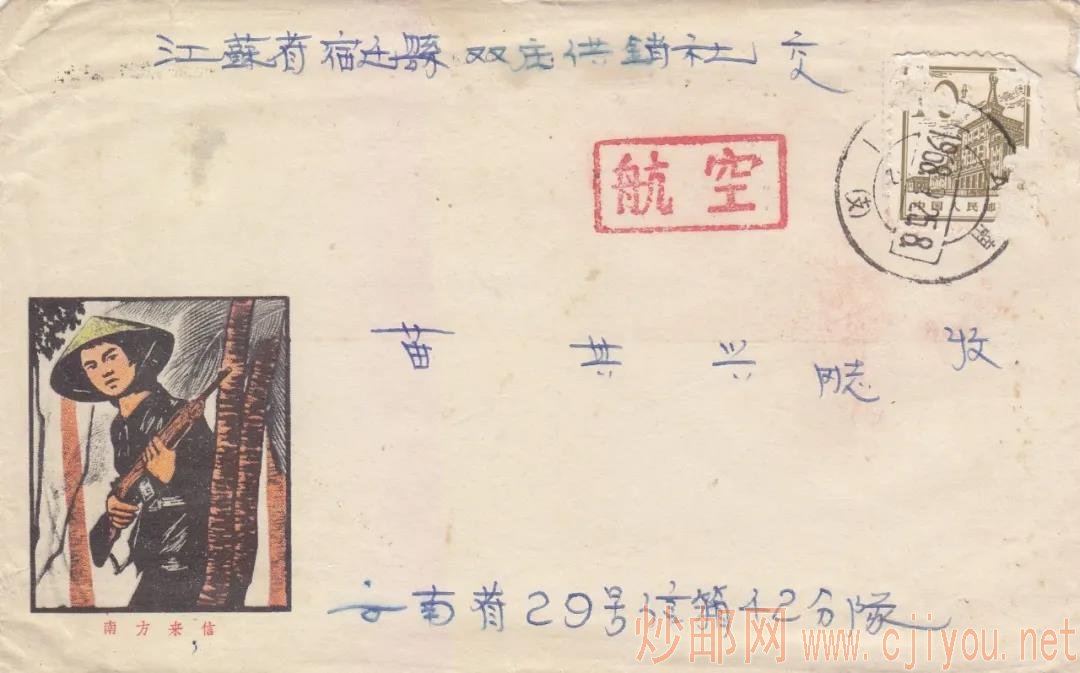 江蘇省宿迁縣双庄供銷社 交
1968
25.8
中国人民邮
航空
苗 共 兴 同志 收
南方来信
云南省29号信箱42分隊
炒邮网 www.cjiyou.net